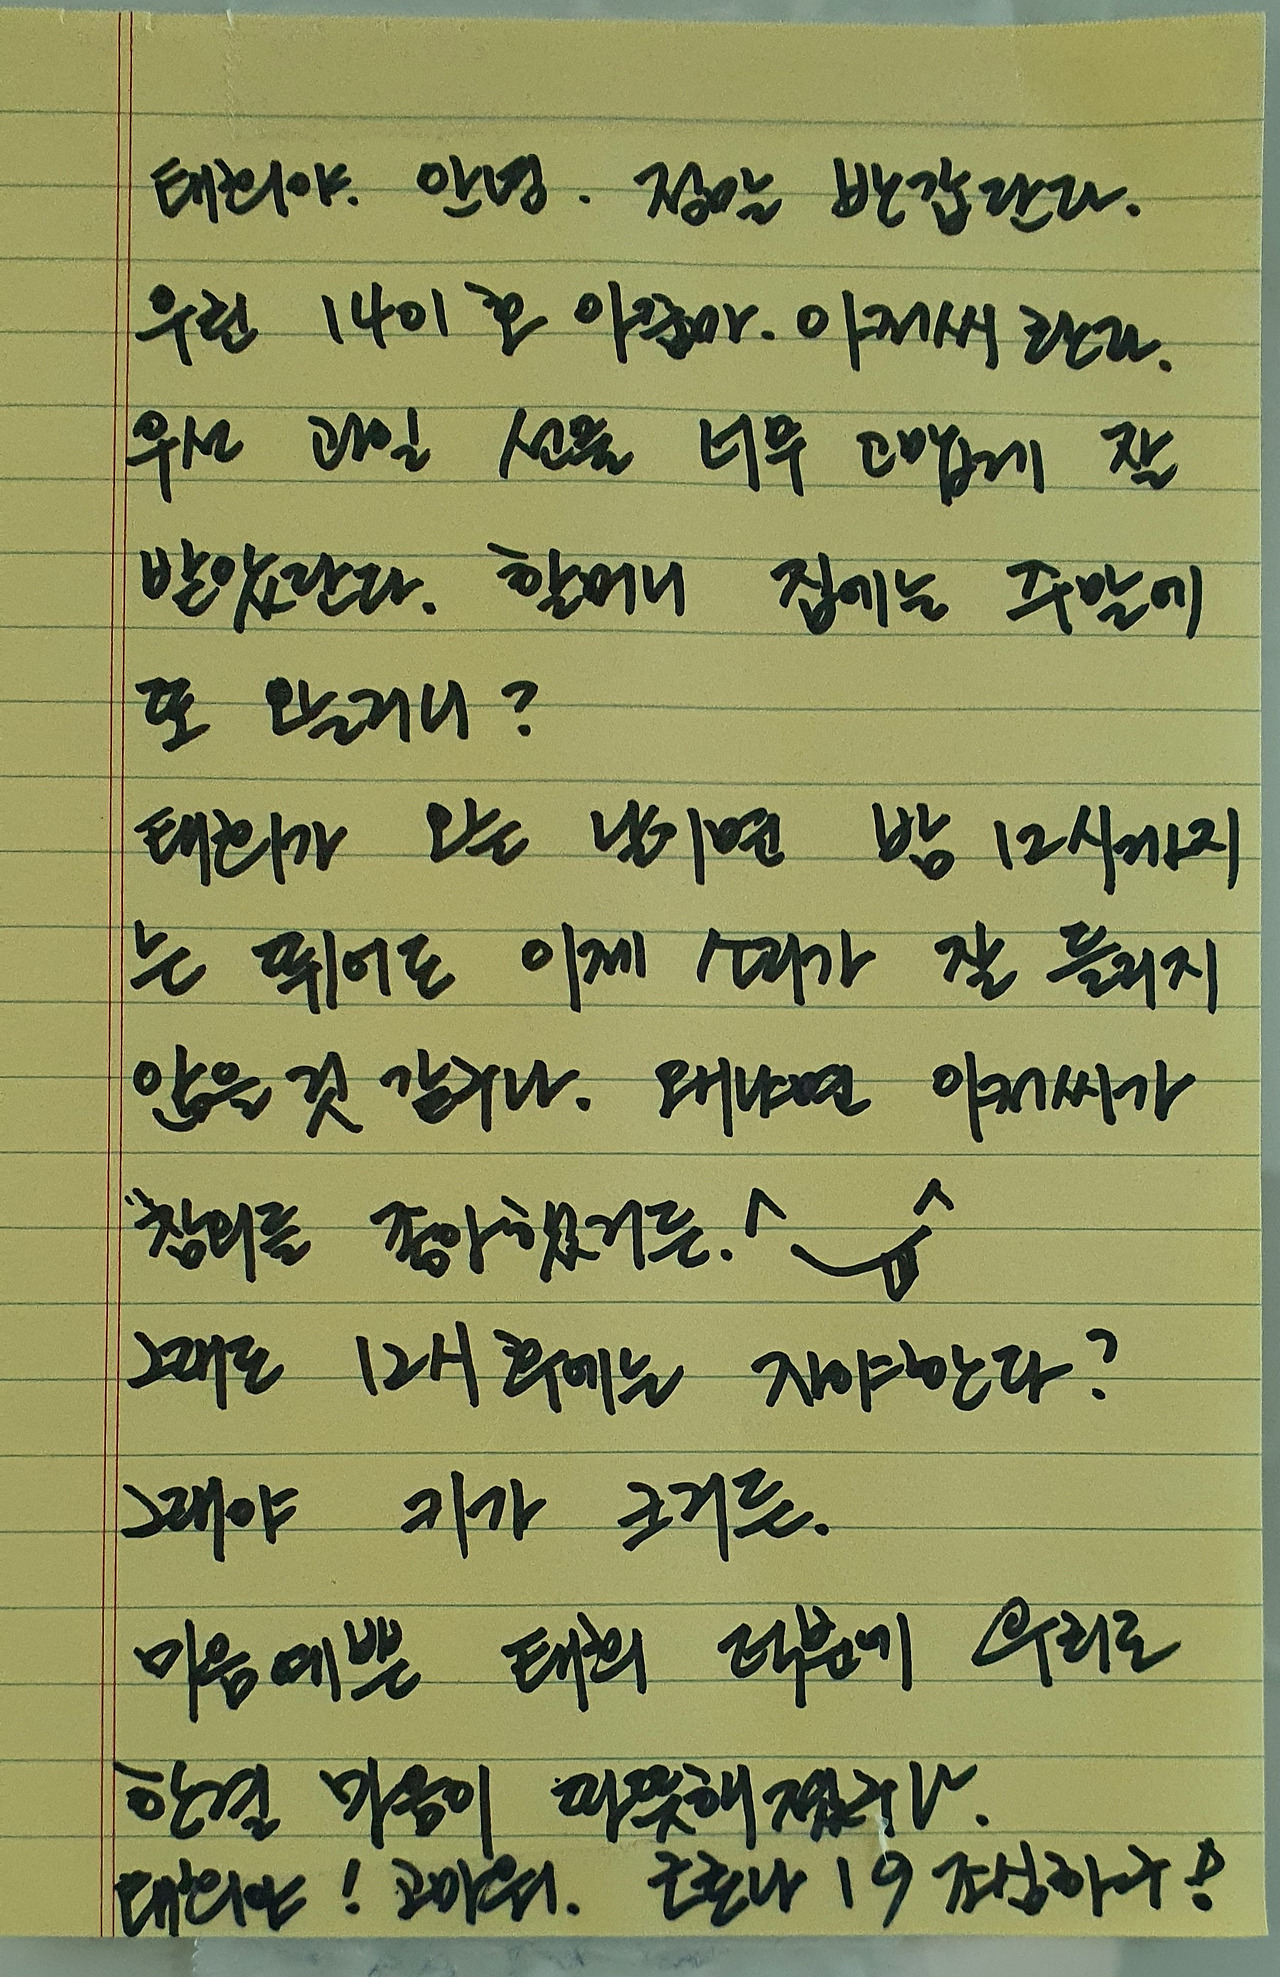 태희야. 안녕. 정말 반갑단다.
우린 1401호 아줌마. 아저씨란다.
우선 과일 선물 너무 고맙게 잘
받았단다. 할머니 집에는 주말에
또 올거니?
태희가 오는 날이면 밤 12시까지
는 뛰어도 이제 소리가 잘 들리지
않을 것 같구나. 왜냐면 아저씨가
창의를 좋아했거든. ^‿^
그래도 12시 후에는 자야한다?
그래야 키가 크거든.
마음예쁜 태희 덕분에 우리도
한결 마음이 따뜻해졌구나.
태희야! 고마워. 코로나 19 조심하구!